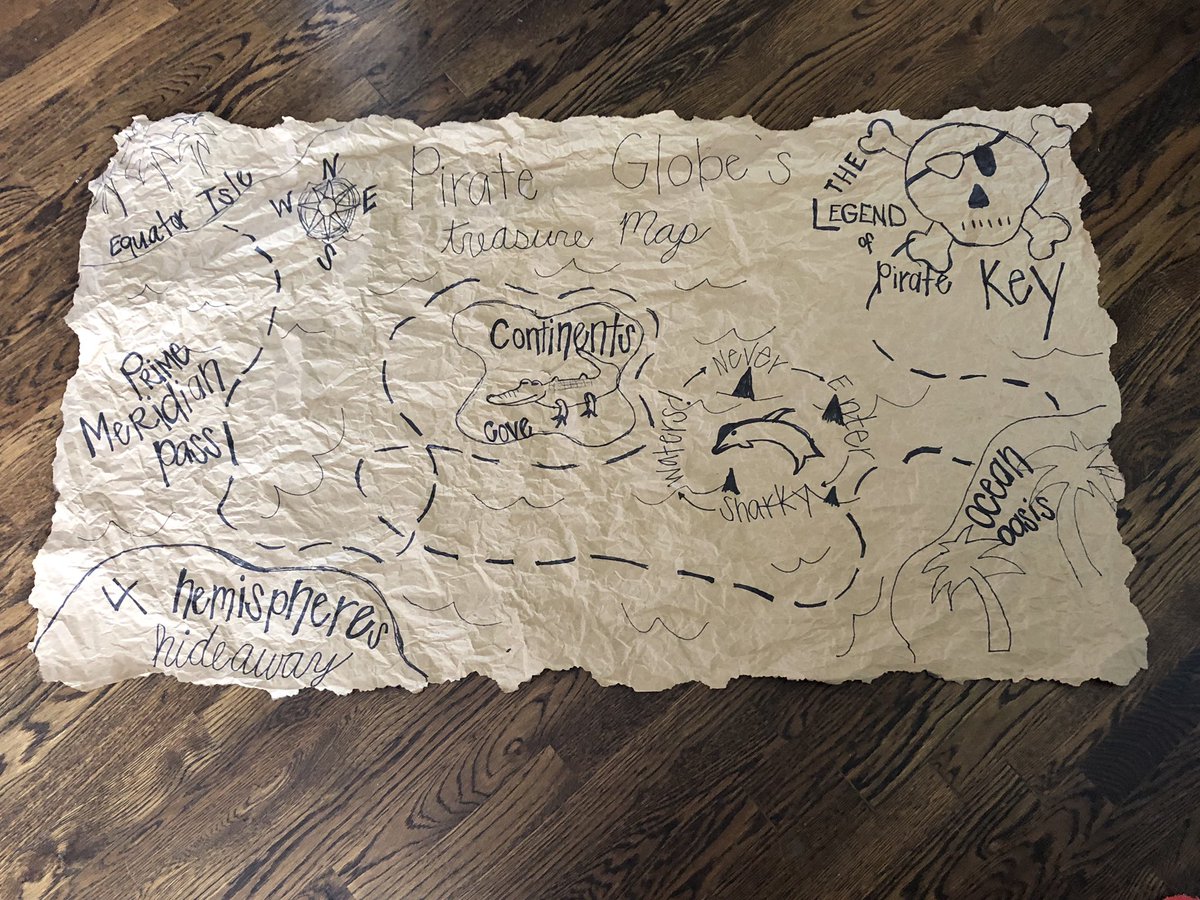 Pirate Globe's
treasure Map
N
W E
S
Equator Isle
THE
LEGEND
of
Pirate
Key
Prime
Meridian
pass!
Continents
Cove
Never
Enter
Sharky
Waters!
ocean
oasis
4 hemispheres
hideaway